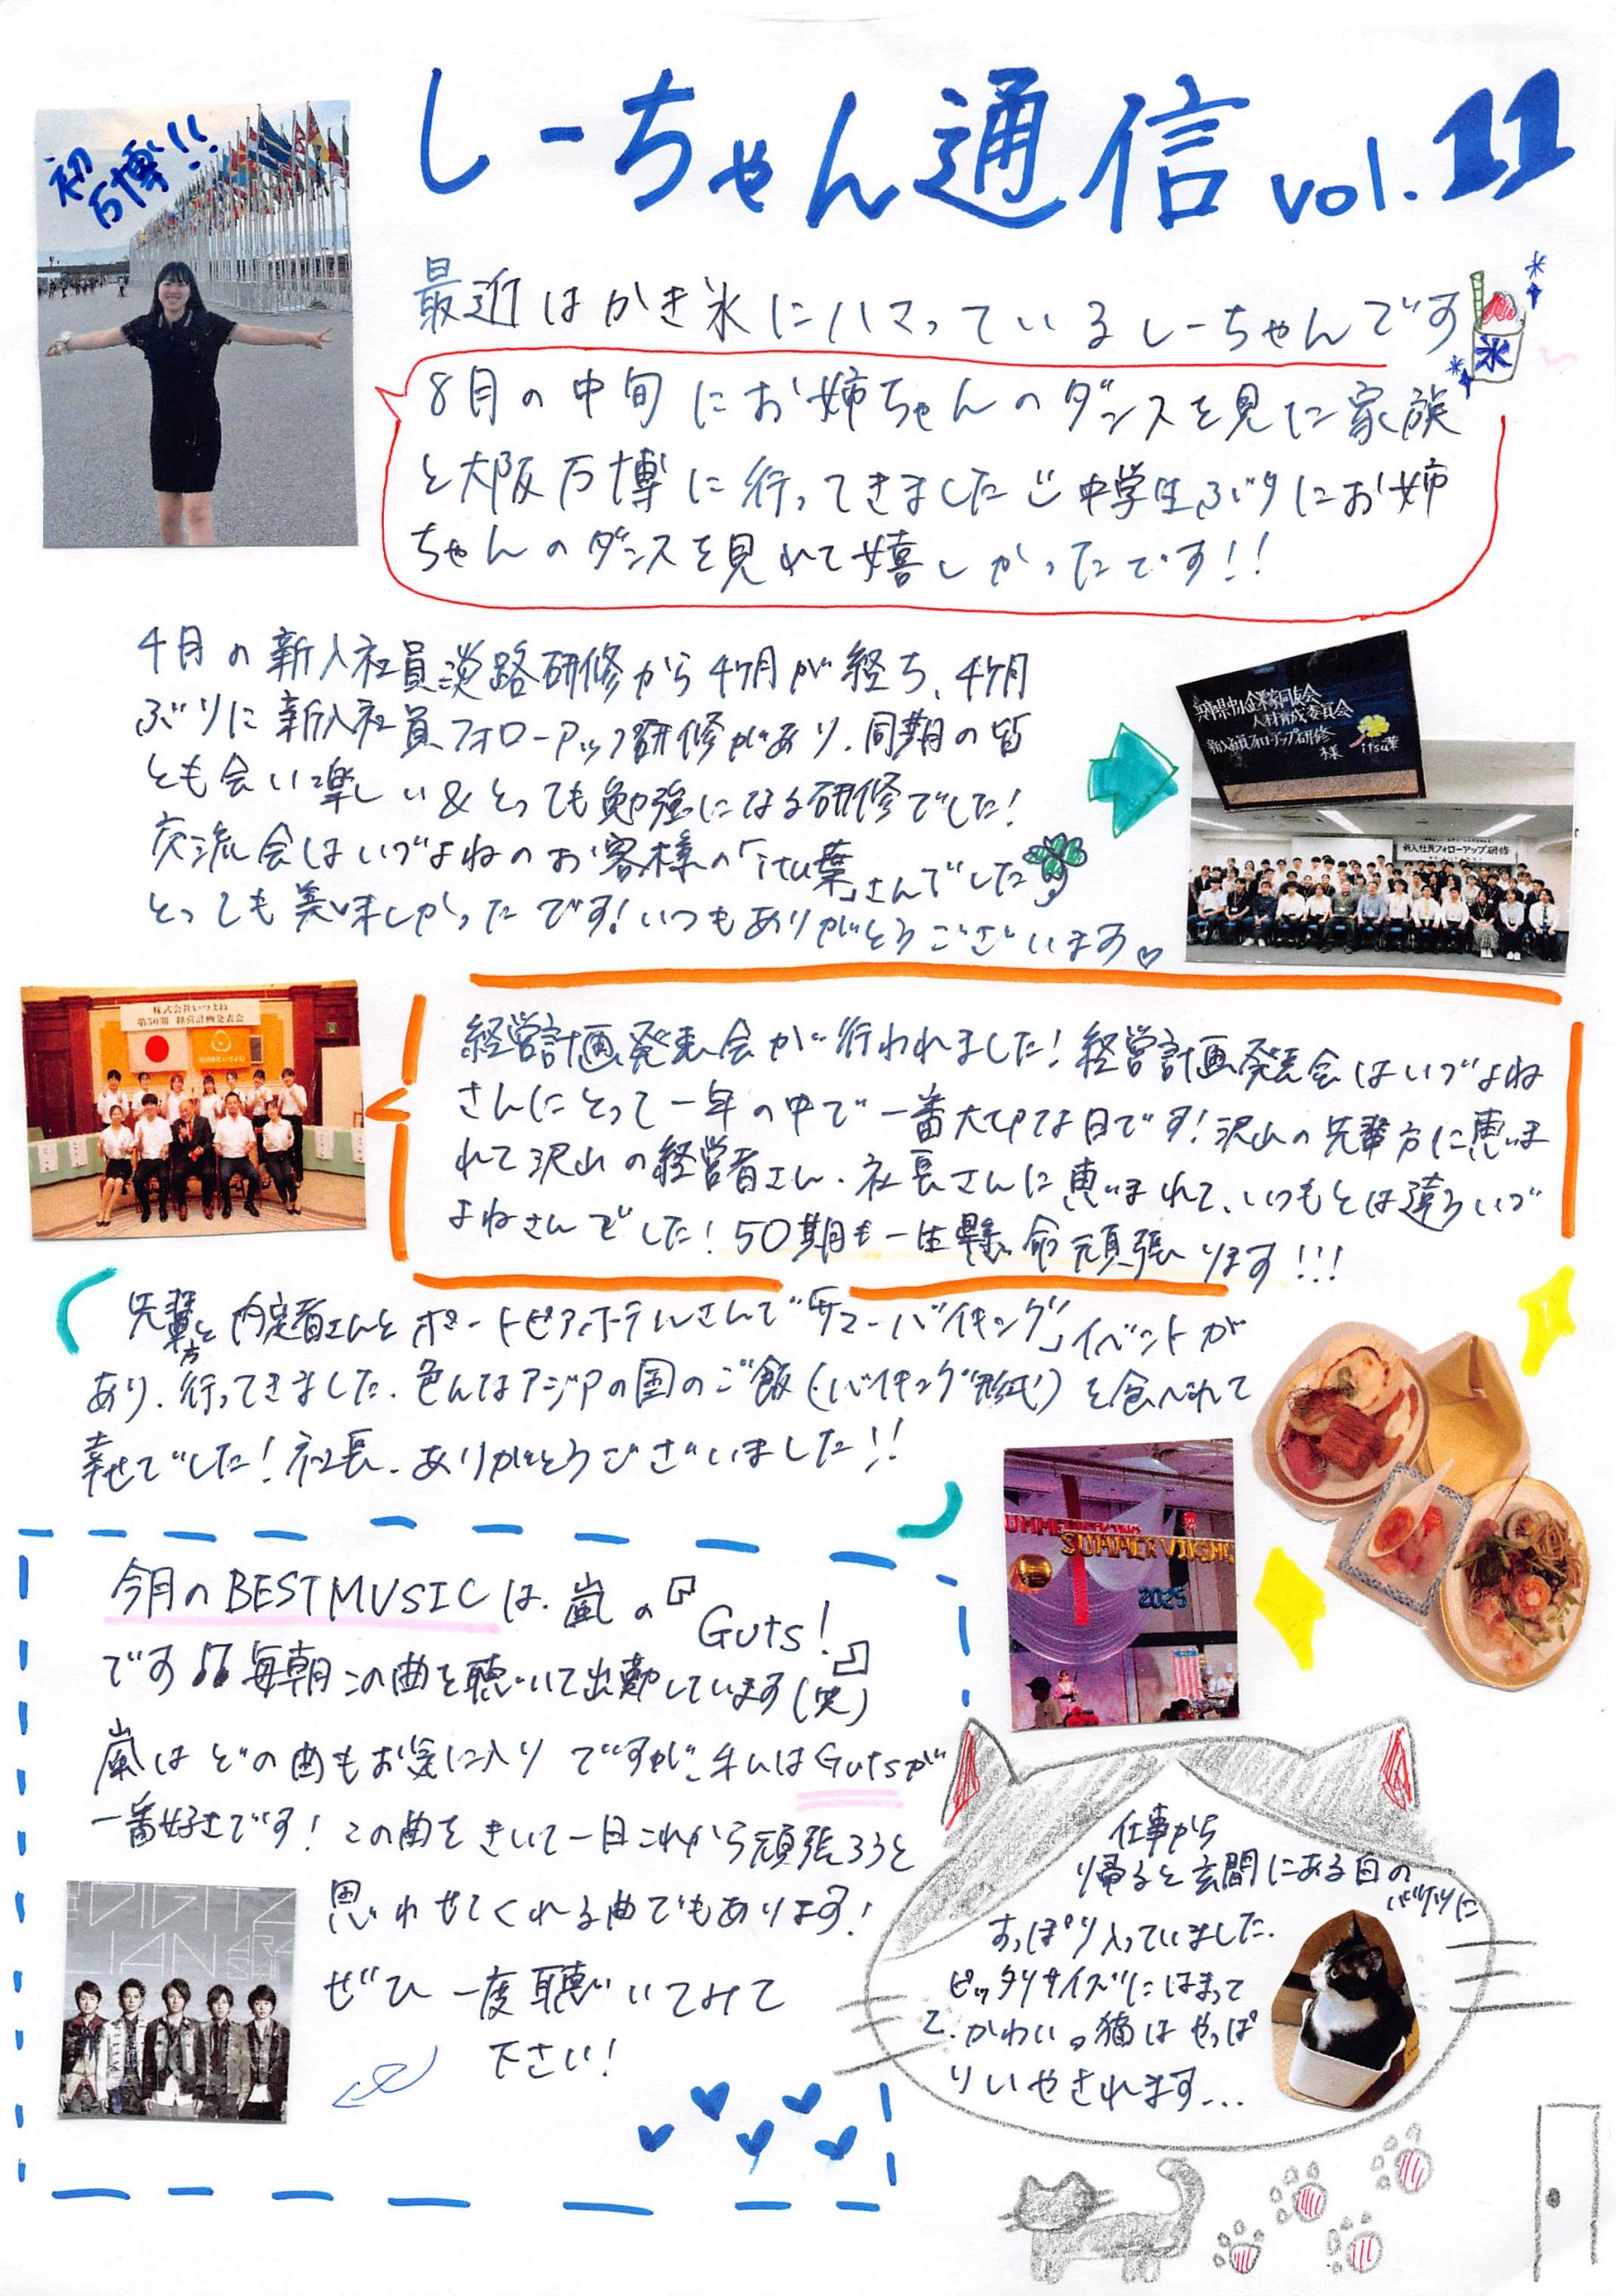 しーちゃん通信 vol.11
初
万博!!
最近はかき氷にハマっているしーちゃんです
氷
8月の中旬にお姉ちゃんのダンスを見に家族
と大阪万博に行ってきました 中学生ぶりにお姉
ちゃんのダンスを見れて嬉しかったです!!
4月の新入社員淡路研修から4ヶ月が経ち、4ヶ月
ぶりに新入社員フォローアップ研修があり、同期の皆
とも会い楽しい&とっても勉強になる研修でした!
交流会はいづよねのお客様の「itu葉」さんでした
とっても美味しかったです!いつもありがとうございます♡
兵庫県中小企業家同友会
人材育成委員会
新入社員フォローアップ研修
様 itsu葉
新入社員フォローアップ研修
株式会社いづよね
第50期 経営計画発表会
経営計画発表会が行われました!経営計画発表会はいづよね
さんにとって一年の中で一番大切な日です!沢山の先輩方に恵ま
れて沢山の経営者さん、社長さんに恵まれて、いつもとは違ういづ
よねさんでした!50期も一生懸命頑張ります!!!
先輩方と内定者さんとポートピアホテルさんで「サマーバイキング」イベントが
あり、行ってきました。色んなアジアの国のご飯(バイキング形式)を食べれて
幸せでした!社長、ありがとうございました!!
SUMMER VIKING
2025
今月のBEST MUSICは、嵐の『Guts!』
です♫毎朝この曲を聴いて出勤しています(笑)
嵐はどの曲もお気に入りですが、私はGutsが
一番好きです!この曲をきいて一日これから頑張ろうと
思わせてくれる曲でもあります!
ぜひ一度聴いてみて
下さい!
仕事から
帰ると玄関にある白の
バケツに
すっぽり入っていました。
ピッタリサイズにはまって
て、かわいい。猫はやっぱ
りいやされます...